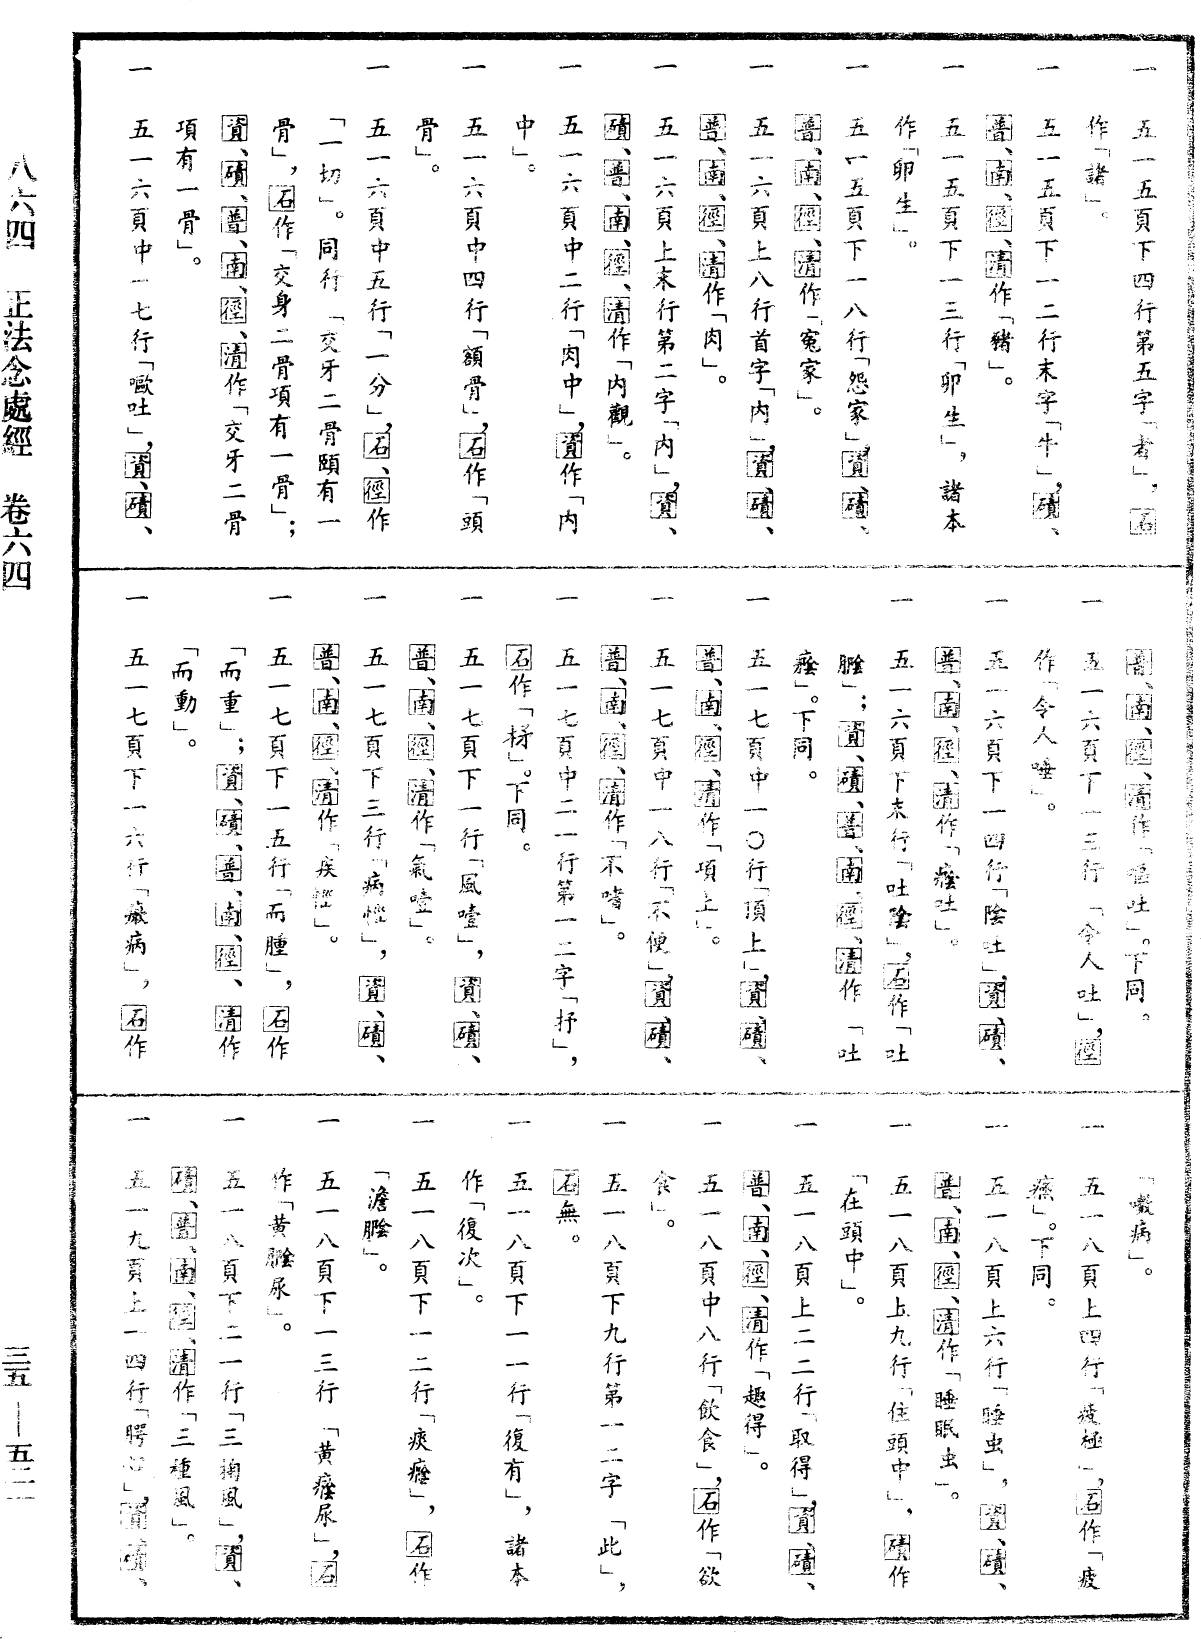 一　五一五頁下四行第五字「者」，石
作「諸」。
一　五一五頁下一二行末字「牛」，磧、
普、南、徑、清作「豬」。
一　五一五頁下一三行「卵生」，諸本
作「卵生」。
一　五一五頁下一八行「怨家」，資、磧、
普、南、徑、清作「冤家」。
一　五一六頁上八行首字「内」，資、磧、
普、南、徑、清作「肉」。
一　五一六頁上末行第二字「内」，資、
磧、普、南、徑、清作「内觀」。
一　五一六頁中二行「肉中」，資作「内
中」。
一　五一六頁中四行「額骨」，石作「頭
骨」。
一　五一六頁中五行「一分」，石、徑作
「一切」。同行「交牙二骨頤有一
骨」，石作「交身二骨項有一骨」；
資、磧、普、南、徑、清作「交牙二骨
項有一骨」。
一　五一六頁中一七行「嘔吐」，資、磧、
普、南、徑、清作「嘔吐」。下同。
一　五一六頁下一三行「令人吐」，徑
作「令人唾」。
一　五一六頁下一四行「陰吐」，資、磧、
普、南、徑、清作「癊吐」。
一　五一六頁下末行「吐陰」，石作「吐
膉」；資、磧、普、南、徑、清作「吐
癊」。下同。
一　五一七頁中一〇行「頂上」，資、磧、
普、南、徑、清作「項上」。
一　五一七頁中一八行「不便」，資、磧、
普、南、徑、清作「不嗜」。
一　五一七頁中二一行第一二字「抒」，
石作「杼」。下同。
一　五一七頁下一行「風噎」，資、磧、
普、南、徑、清作「氣噎」。
一　五一七頁下三行「病悭」，資、磧、
普、南、徑、清作「疾」。
一　五一七頁下一五行「而腫」，石作
「而重」；資、磧、普、南、徑、清作
「而動」。
一　五一七頁下一六行「癥病」，石作
「嗽病」。
一　五一八頁上四行「疲極」，石作「疲
㾞」。下同。
一　五一八頁上六行「睡虫」，資、磧、
普、南、徑、清作「睡眠虫」。
一　五一八頁上九行「住頭中」，磧作
「在頭中」。
一　五一八頁上二二行「取得」，資、磧、
普、南、徑、清作「趣得」。
一　五一八頁中八行「飲食」，石作「欲
食」。
一　五一八頁下九行第一二字「此」，
石無。
一　五一八頁下一一行「復有」，諸本
作「復次」。
一　五一八頁下一二行「痰癊」，石作
「澹」。
一　五一八頁下一三行「黄癊尿」，石
作「黄尿」。
一　五一八頁下二一行「三掬風」，資、
磧、普、南、徑、清作「三種風」。
一　五一九頁上一四行「腭」，資、磧、
八六四　正法念處經　卷六四
三五—五二一